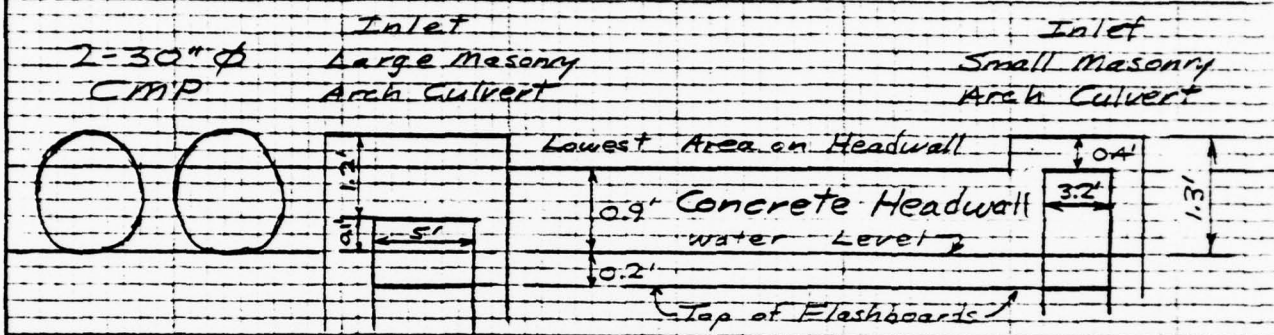 2-30" Ø
CMP
Inlet
Large Masonry
Arch Culvert
Inlet
Small Masonry
Arch Culvert
Lowest Area on Headwall
1.2'
0.4'
3.2'
1.3'
0.9'
Concrete Headwall
5'
Water Level
0.2'
Top of Flashboards